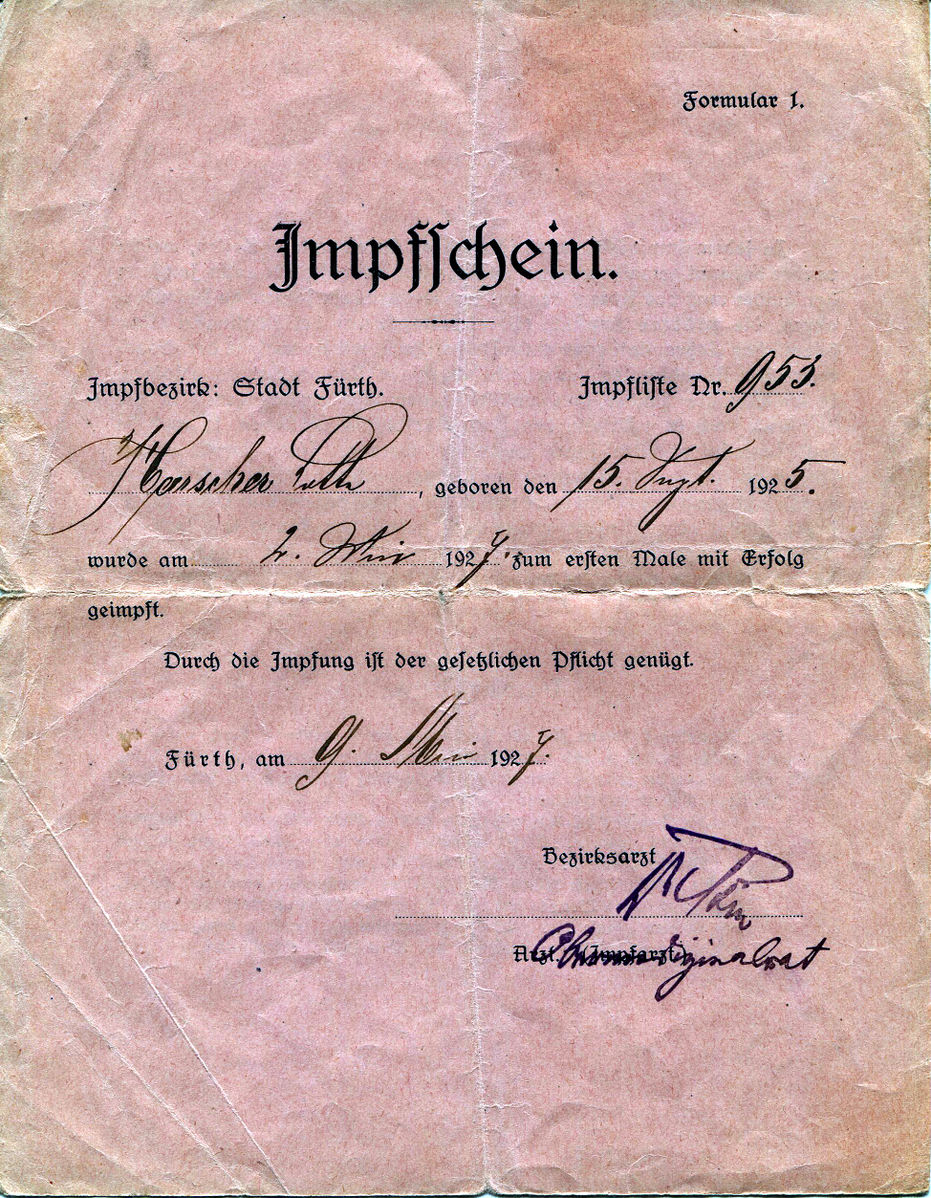 Formular 1.
Impfschein.
Impfbezirk: Stadt Fürth. Impfliste Nr. 953.
Harscher, geboren den 15. Sept. 1925.
wurde am 2. Mai 1927. zum ersten Male mit Erfolg
geimpft.
Durch die Impfung ist der gesetzlichen Pflicht genügt.
Fürth, am 9. Mai 1927.
Bezirksarzt
Dr
Arzt. (Impfarzt).